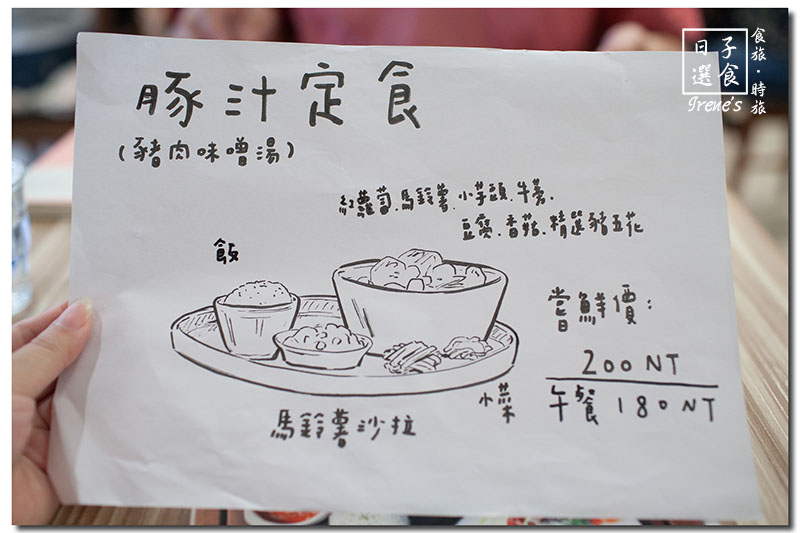 豚汁定食
(豬肉味噌湯)
紅蘿蔔.馬鈴薯.小芋頭.牛蒡.
豆腐.香菇.精選豬五花
飯
嘗鮮價:
200NT
午餐180NT
小菜
馬鈴薯沙拉
日子
選食
Irene's
食旅·時旅